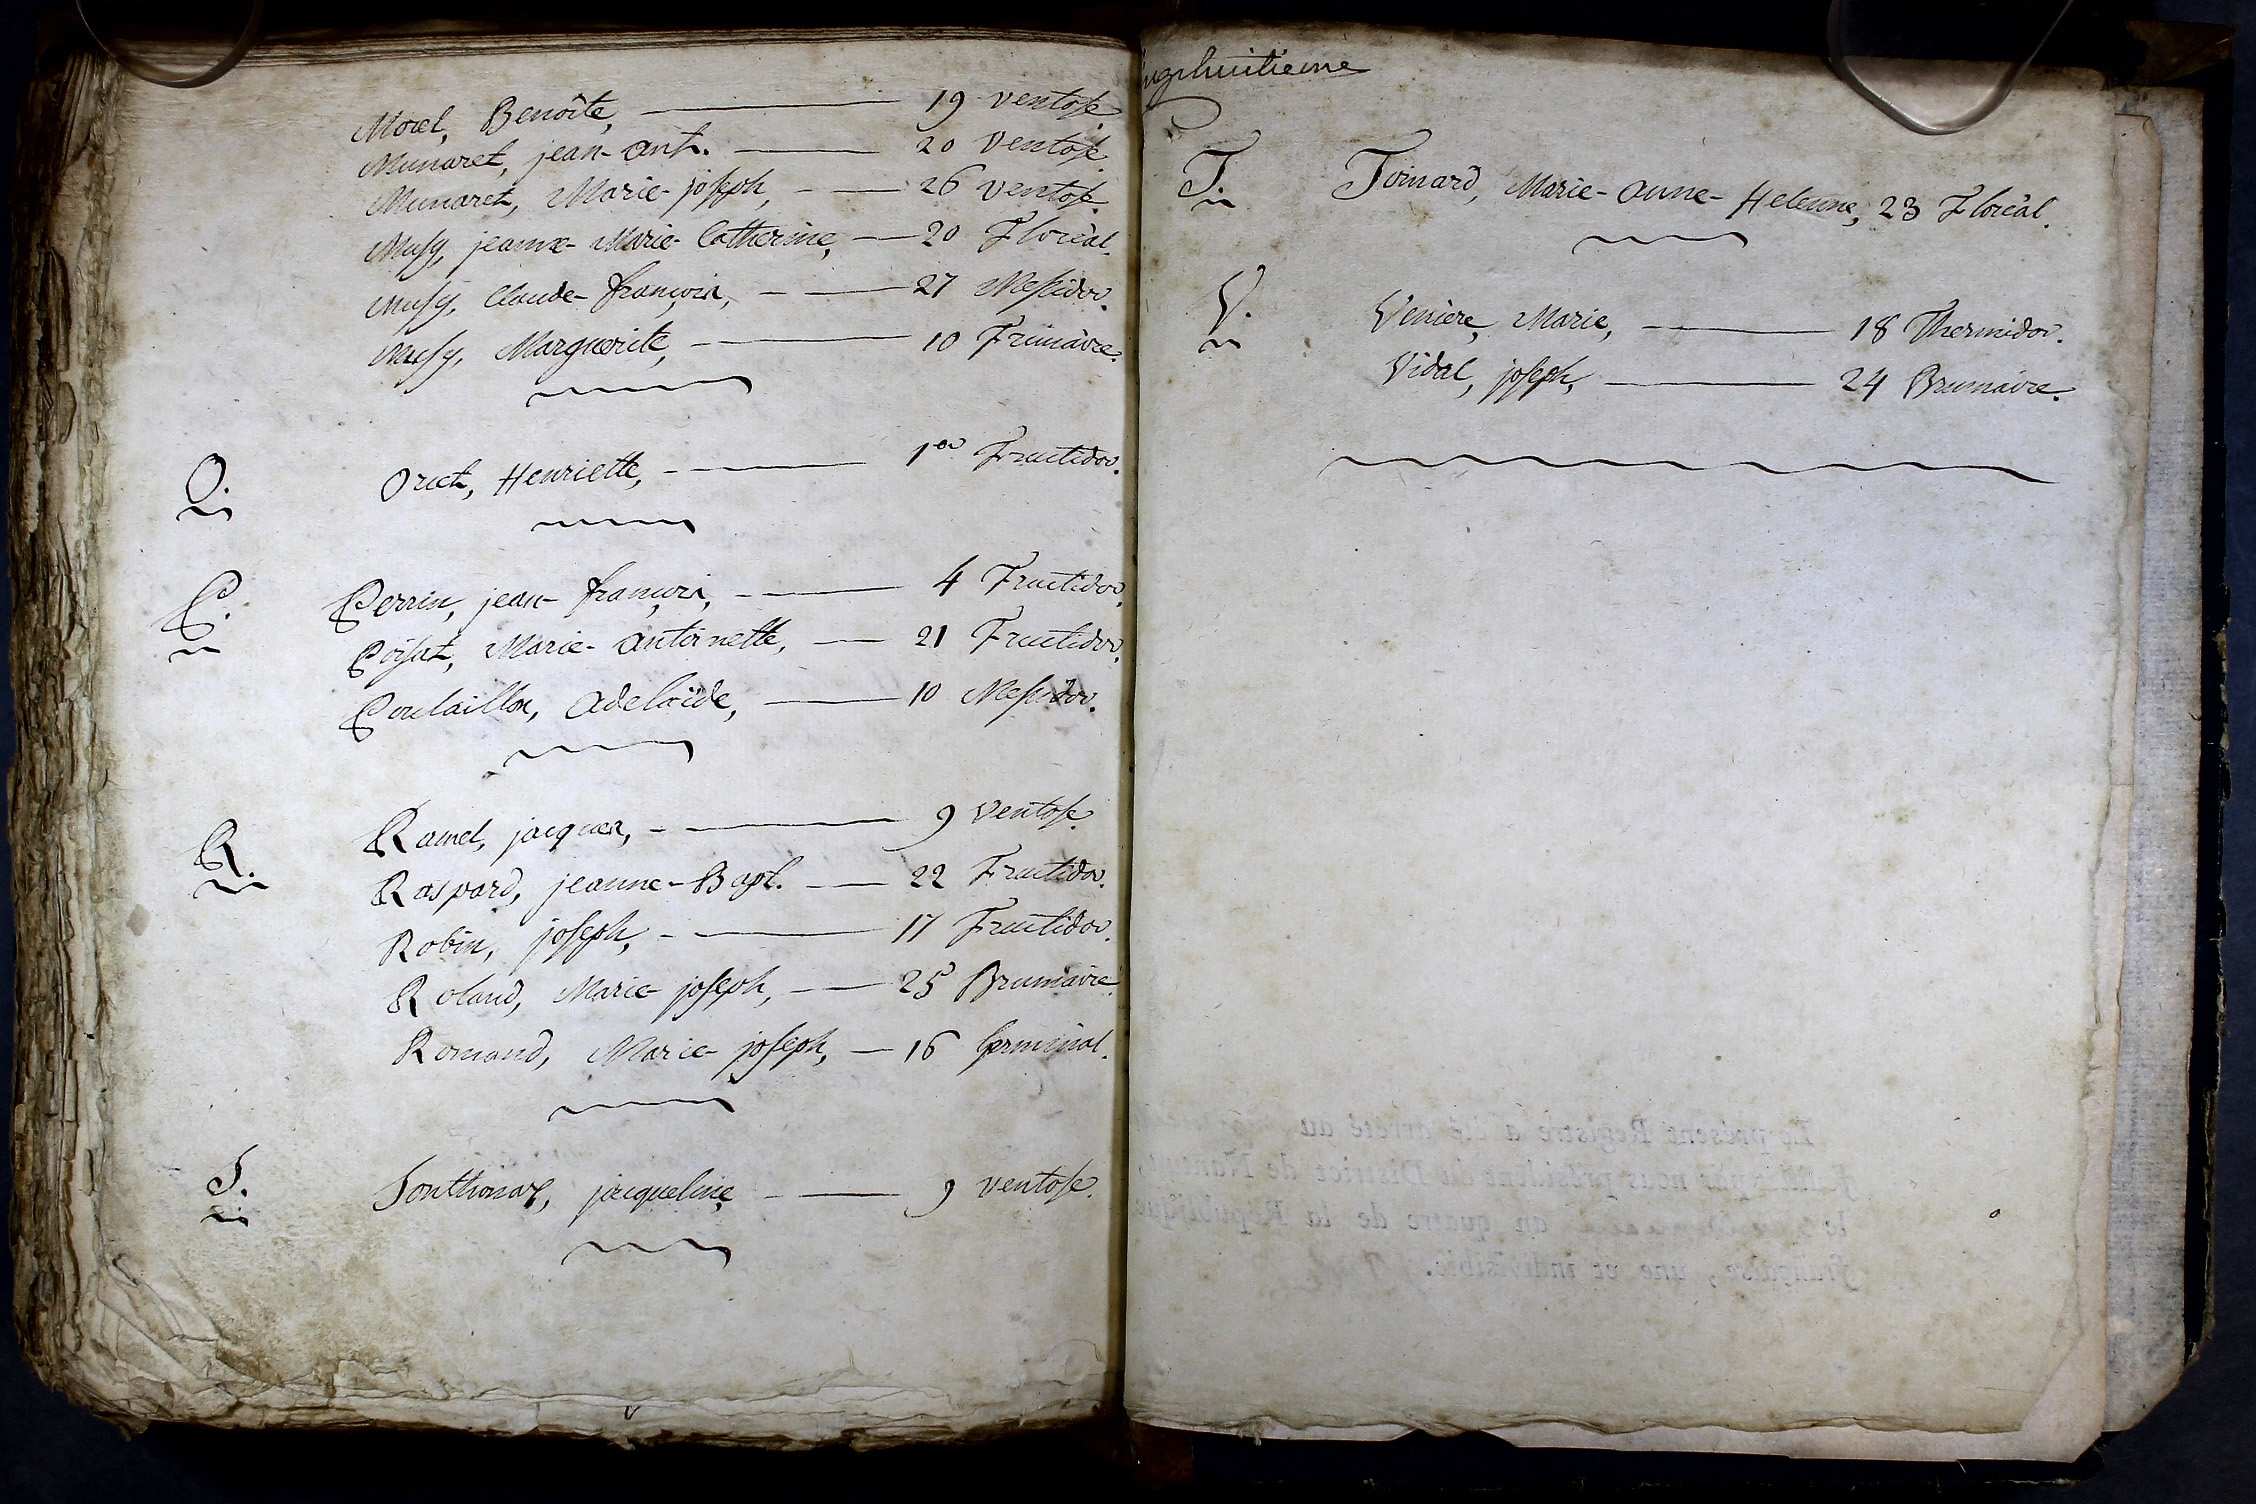 Morel, Benoîte, 19 ventose
Munaret, jean-ant. 20 ventose
Munaret, Marie-joseph, 26 ventose.
Musy, jeanne-Marie-Catherine, 20 Floréal.
Musy, Claude-françois, 27 Messidor.
Musy, Marguerite, 10 Frimaire.
O. Oriet, Henriette, 1er Fructidor.
P. Perrin, jean-françois, 4 Fructidor.
Poisat, Marie-antoinette, 21 Fructidor.
Poulaillon, adelaïde, 10 Messidor.
R. Ramel, jacques, 9 ventose.
Raspard, jeanne-Bapt. 22 Fructidor.
Robin, joseph, 17 Fructidor.
Roland, Marie-joseph, 25 Brumaire.
Romand, Marie-joseph, 16 Germinal.
S. Sonthonax, jacqueline 9 ventose.
ingthuitieme
T. Toinard, Marie-anne-Helenne, 23 Floréal.
V. Veniere, Marie, 18 Thermidor.
Vidal, joseph, 24 Brumaire.